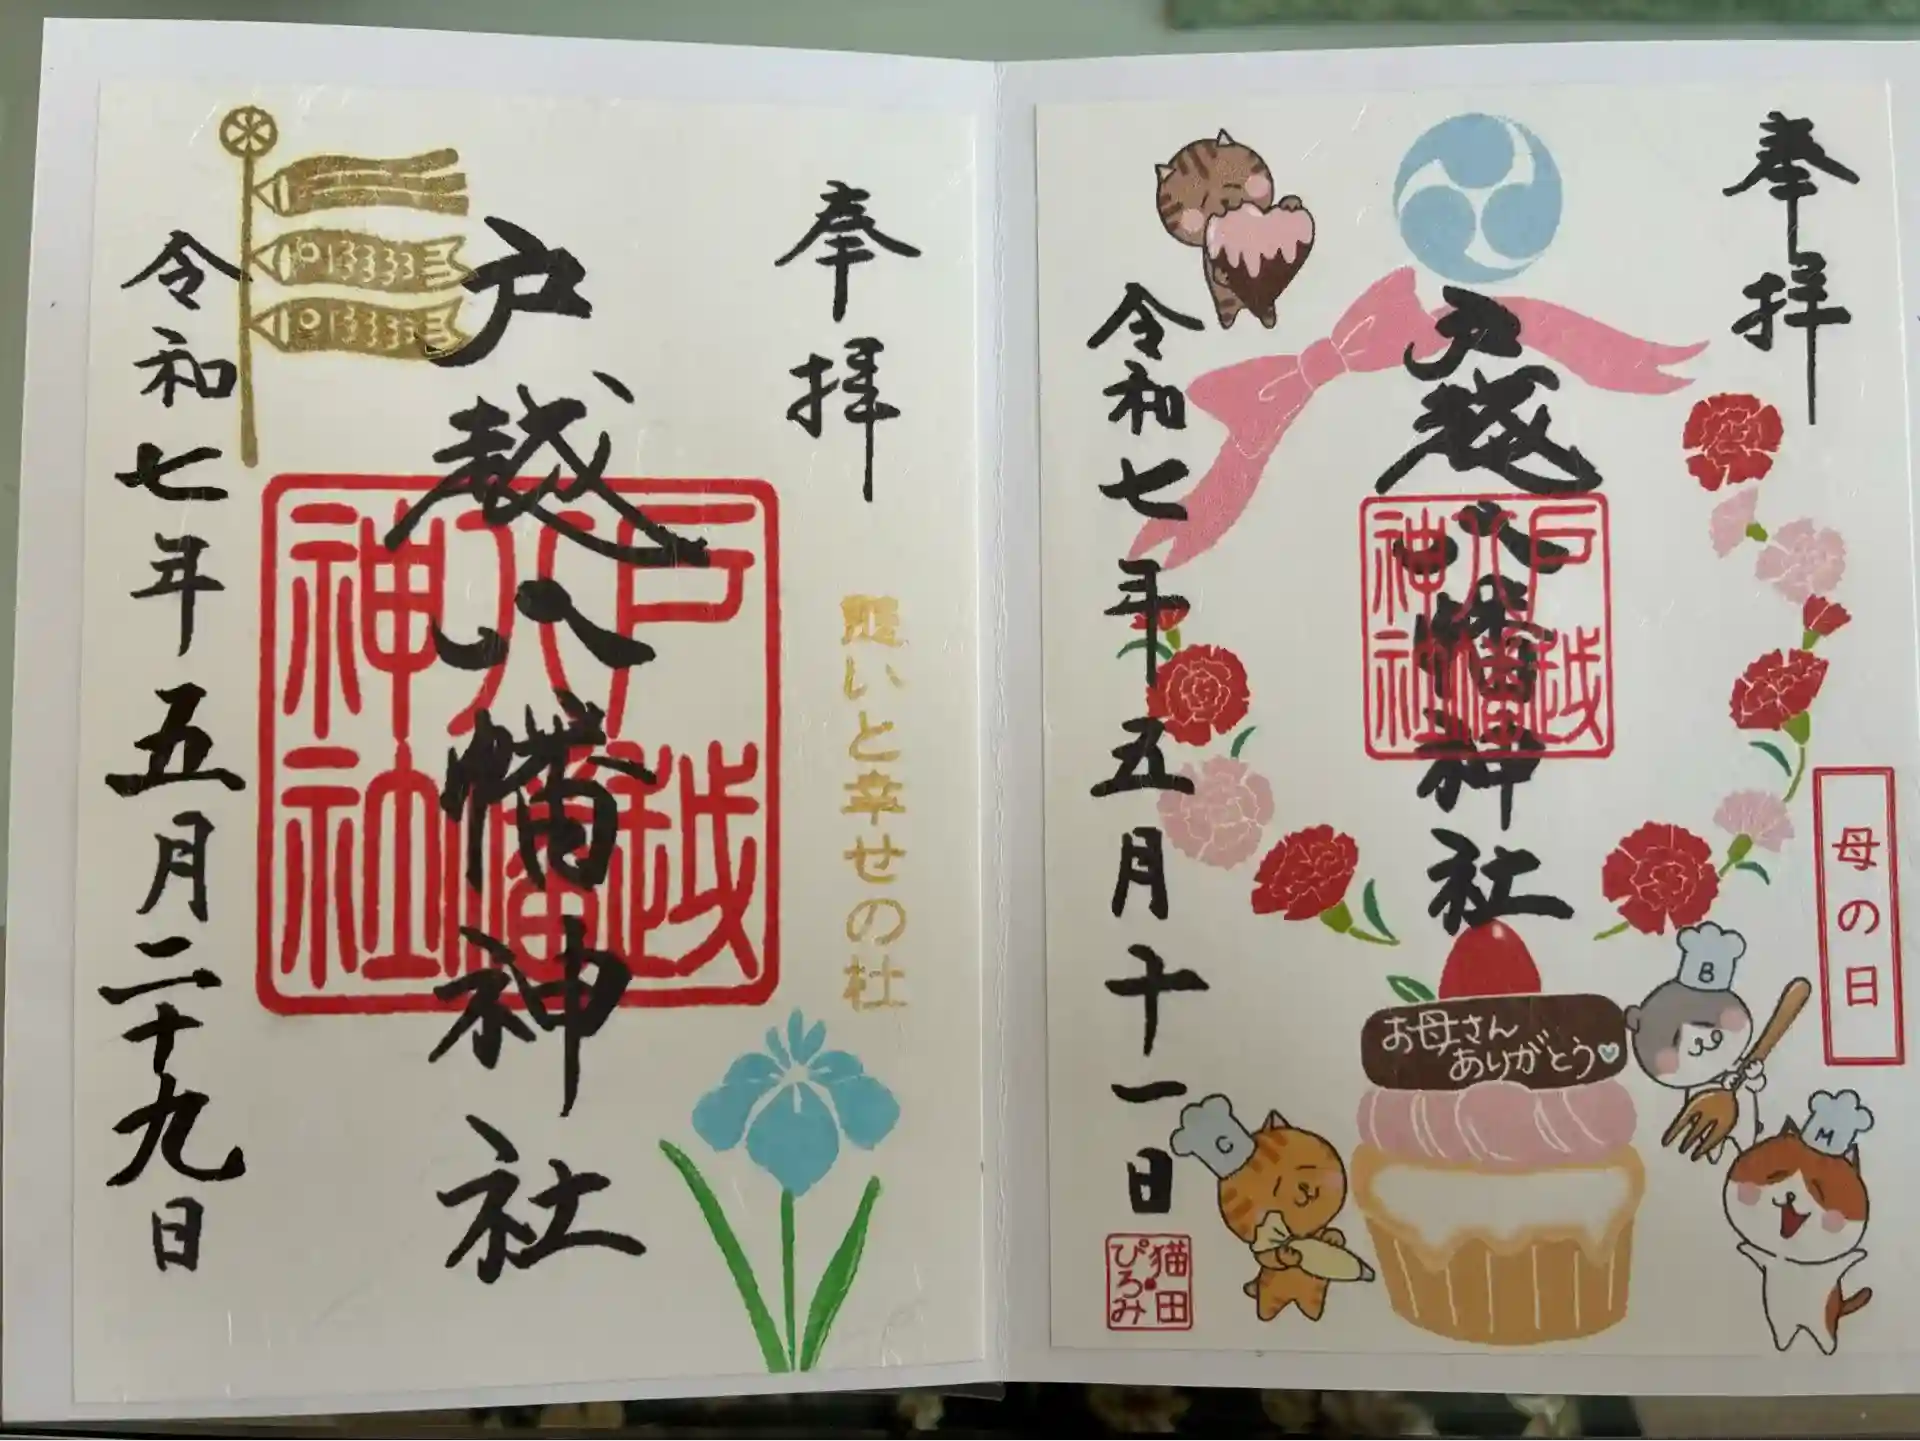 奉拝
戸越八幡神社
戸越
八幡
神社
令和七年五月二十九日
憩いと幸せの杜
奉拝
戸越八幡神社
戸越
八幡
神社
令和七年五月十一日
母の日
お母さん
ありがとう
B
C
M
猫田
ぴろみ